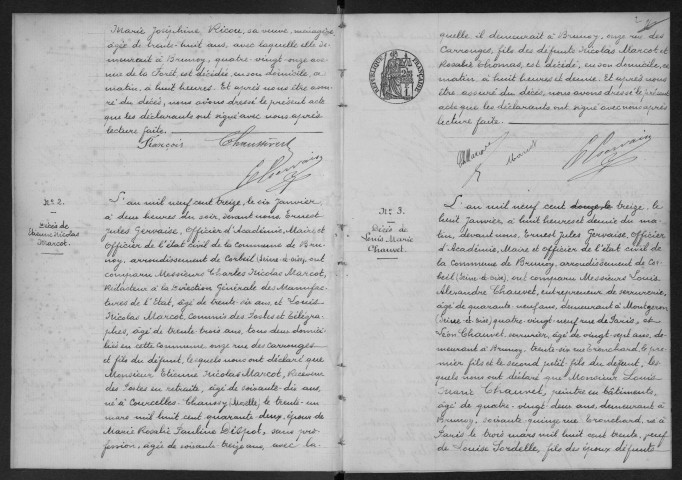 Marie Joséphine Ricou, sa veuve, ménagère
âgée de trente-huit ans, avec laquelle elle de-
meurait à Brunoy, quatre-vingt-onze ave-
nue de la Forêt, est décédé, en son domicile, ce
matin, à huit heures. Et après nous être assu-
ré du décès, nous avons dressé le présent acte
que les déclarants ont signé avec nous après
lecture faite.
François Chauvivert
E Gervaise
N° 2.
Décès de
Etienne Nicolas
Marcot.
L'an mil neuf cent treize, le six Janvier
à deux heures du soir, devant nous Ernest
Jules Gervaise, Officier d'Académie, Maire et
Officier de l'état civil de la Commune de Bru-
noy, arrondissement de Corbeil (Seine-&-oise), ont
comparu Messieurs Charles Nicolas Marcot,
Rédacteur à la Direction Générale des Manufac-
tures de l'Etat, âgé de trente six ans et Louis
Nicolas Marcot, commis des Postes et Télégra-
phes, âgé de trente trois ans, tous deux domici-
liés en cette Commune, onze rue des Carronges
et fils du défunt, lesquels nous ont déclaré que
Monsieur Etienne Nicolas Marcot, Receveur
des Postes en retraite, âgé de soixante-dix ans,
né à Courcelles-Chaussy (Moselle), le trente-un
mars mil huit cent quarante deux, époux de
Marie Rosalie Pauline Dispot, sans pro-
fession, âgée de soixante treize ans, avec la-
2
quelle il demeurait à Brunoy, onze rue des
Carronges, fils des défunts Nicolas Marcot et
Rosalie Thomas, est décédé, en son domicile, ce
matin, à huit heures et demie. Et après nous
être assuré du décès, nous avons dressé le présent
acte que les déclarants ont signé avec nous après
lecture faite.
REPUBLIQUE FRANÇAISE
Marcot Marcot E Gervaise
N° 3.
Décès de
Louis Marie
Chauvet.
L'an mil neuf cent douze, le treize, le
huit Janvier, à huit heures et demie du ma-
tin, devant nous, Ernest Jules Gervaise, Officier
d'Académie, Maire et officier de l'état civil de
la Commune de Brunoy, arrondissement de Cor-
beil (Seine-&-oise), ont comparu Messieurs Louis
Alexandre Chauvet, entrepreneur de serrurerie,
âgé de quarante-neuf ans, demeurant à Montgeron
(Seine-&-oise) quatre-vingt-neuf rue de Paris, et
Léon Chauvet, serrurier, âgé de vingt-sept ans, de-
meurant à Brunoy, trente six rue Tronchard, le pre-
mier fils et le second petit-fils du défunt, les
quels nous ont déclaré que Monsieur Louis
Marie Chauvet, peintre en bâtiments,
âgé de quatre-vingt-deux ans, demeurant à
Brunoy, soixante quinze rue Tronchard, né à
Paris le trois mars mil huit cent trente, veuf
de Louise Sordelle, fils des époux défunts